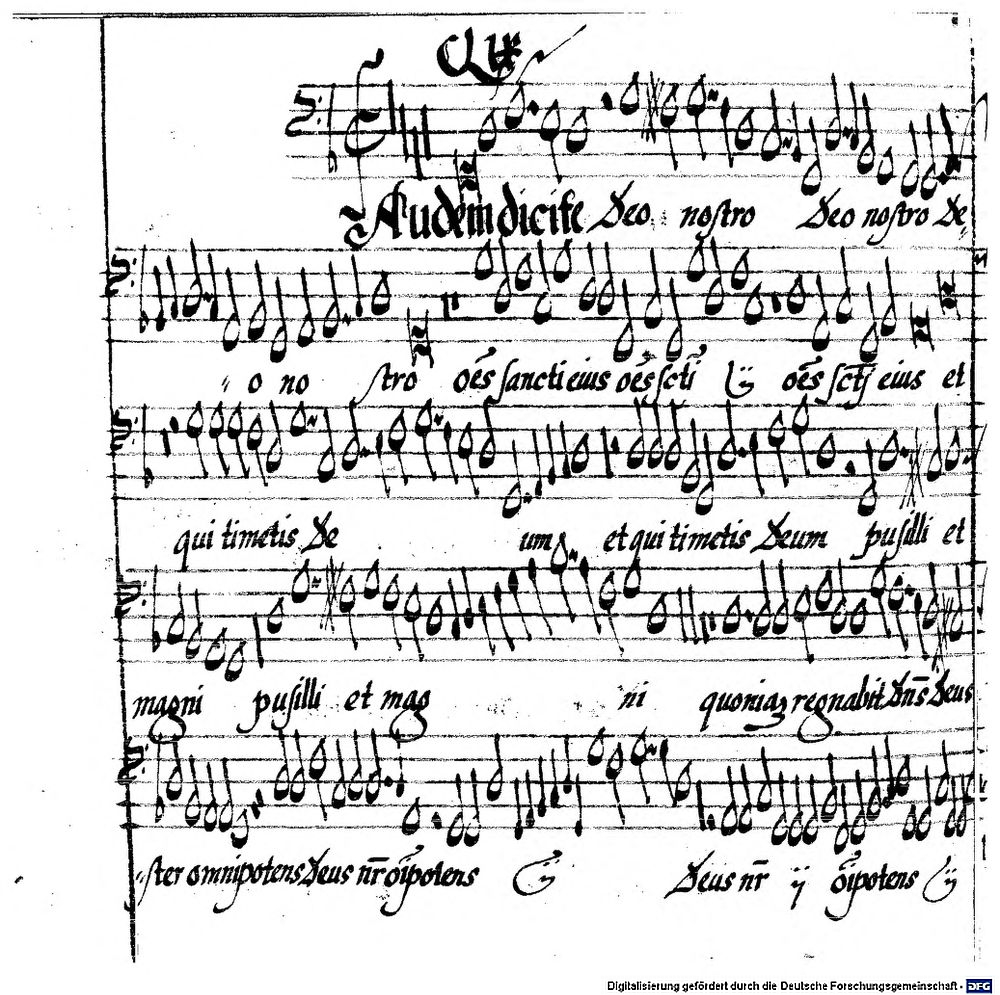 Laudem dicite Deo nostro Deo nostro De
o no stro oēs sancti eius oēs scti ij oēs scti eius et
qui timetis De um et qui timetis Deum pusilli et
magni pusilli et mag ni quoniaz regnabit Dñs Deus
ster omnipotens Deus nr̄ oīpotens ij Deus nr̄ ij oīpotens ij
Digitalisierung gefördert durch die Deutsche Forschungsgemeinschaft - DFG